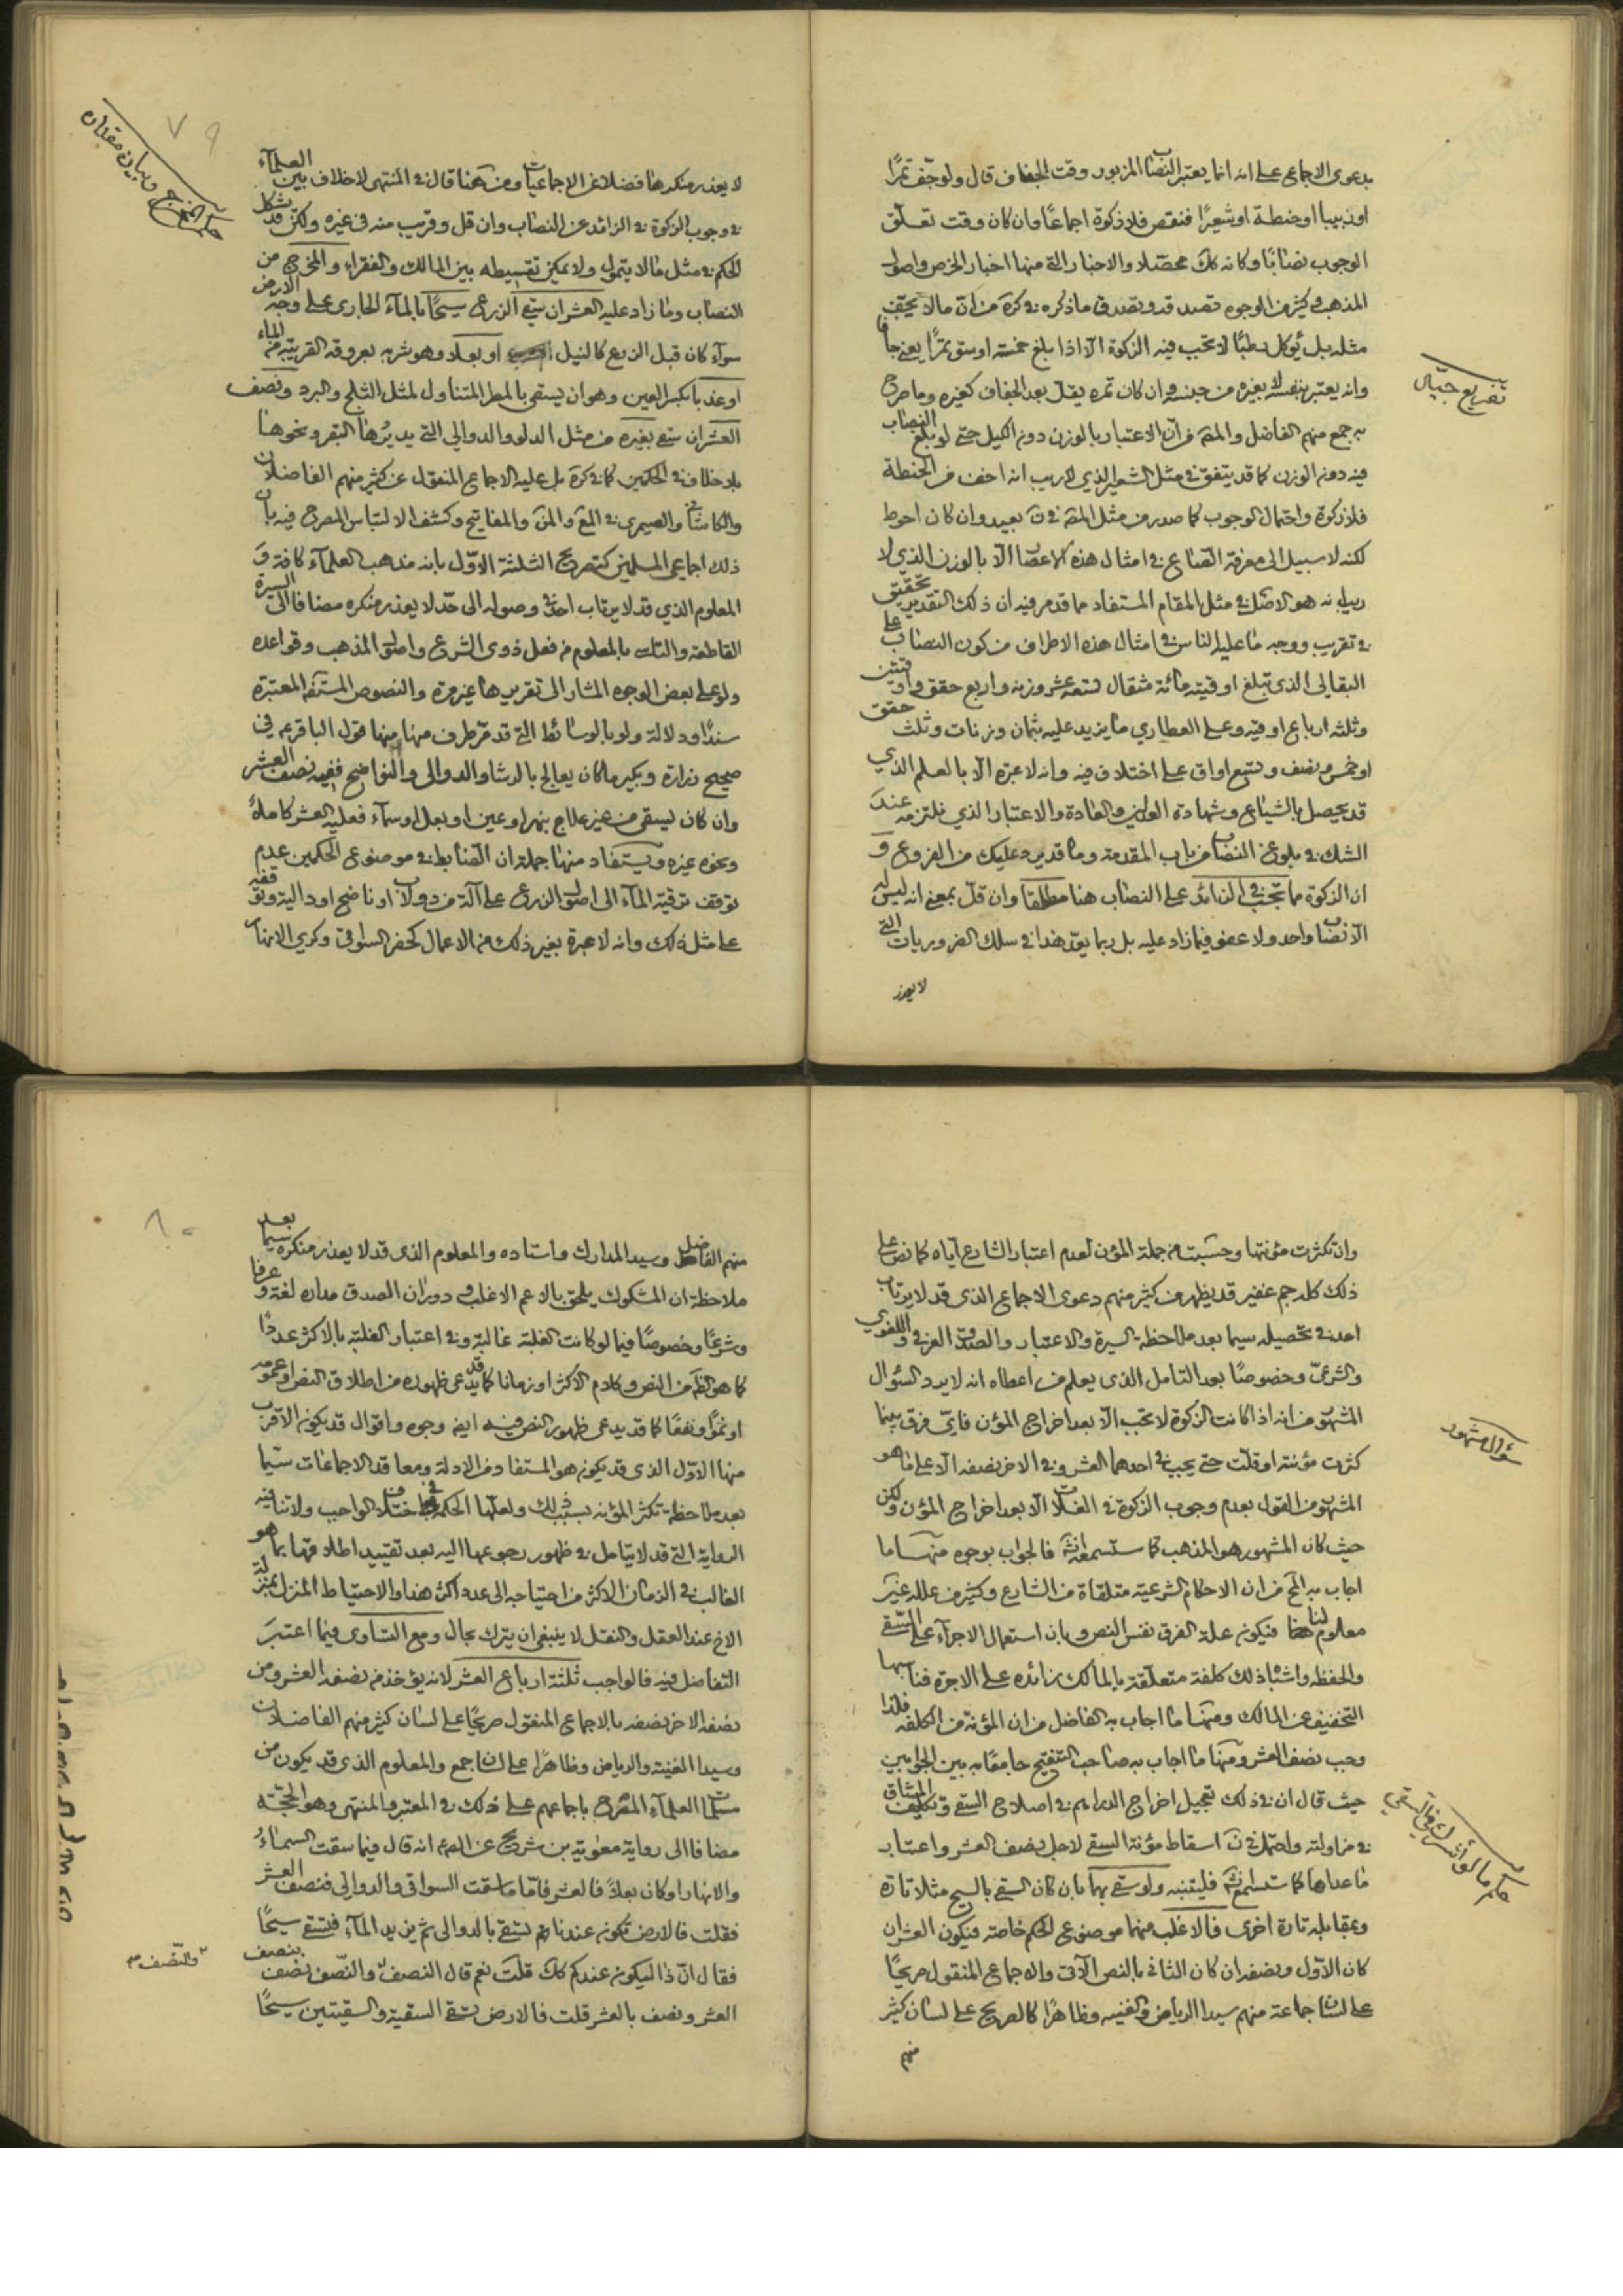 بدعوى الاجماع على انه انما يعتبر النصاب المزبور وقت الجفاف قال ولو جفف تمرًا
او زبيبا او حنطة او شعيرًا فنقص فلا زكوة اجماعًا وان كان وقت تعلق
الوجوب نصابًا وكانه كك محصّلا والاخبار التي منها اخبار الخرص واصول
المذهب وكثير من الوجوه تصدقه ويصدق ما ذكره في كرة من ان ما لا يجفف
مثله بل يؤكل رطبًا لا تجب فيه الزكوة الا اذا بلغ خمسة اوسق تمرًا يعني جافا
وانه يعتبر بنفسه لا بغيره من جنسه وان كان تمره يقل بعد الجفاف كغيره وما صرح
به جمع منهم الفاضل من ان الاعتبار بالوزن دون الكيل حتى لو بلغ النصاب
فيه دون الوزن كما قد يتفق في مثل الشعير الذي لا ريب انه اخف من الحنطة
فلا زكوة واحتمال الوجوب كما صدر من مثل في بعيد وان كان احوط
لكنه لا سبيل الى معرفة الصاع في امثال هذه الاعصار الا بالوزن الذي لا
ريب انه هو الاصل في مثل المقام المستفاد مما قد مر فيه ان ذلك التقدير تحقيق
في تقريب ووجه ما عليه الناس في امثال هذه الاطراف من كون النصاب على
البقالي الذي تبلغ اوقيته مائة مثقال تسعة عشر وزنه واربع حقق واوقيتين
وثلثة ارباع اوقيه وعلى العطاري ما يزيد عليه بثمان وزنات وثلث حقق
او خمس ونصف وتسع اواق على اختلاف فيه وانه لا عبرة الا بالعلم الذي
قد يحصل بالشياع وشهادة العدلين والعادة والاعتبار الذي نلتزمه عند
الشك في بلوغ النصاب من باب المقدمة وما قد يرد عليك من الفروع و
ان الزكوة مما تجب في الزائد على النصاب هنا مطلقا وان قل بمعنى انه ليس له
الا نصاب واحد ولا عفو فيما زاد عليه بل ربما يعد هذا في سلك الضروريات التي
لا يعذر
تفريع جيّال
٧٩
لا يعذر منكرها فضلا عن الاجماعيات ومن هنا قال في المنتهى لا خلاف بين العلماء
في وجوب الزكوة في الزائد عن النصاب وان قل وقريب منه في غيره ولكن قد يشكل
الحكم في مثل ما لا يتمول ولا يمكن تقسيطه بين المالك والفقراء والمخرج من
النصاب وما زاد عليه العشر ان سقى الزرع سيحًا بالماء الجاري على وجه الارض
سواء كان قبل الزرع كالنيل او بعلا وهو شربه بعروقه القريبة من الماء
او عذبا بكسر العين وهو ان يسقى بالمطر المتناول لمثل الثلج والبرد ونصف
العشر ان سقى بغيره من مثل الدلو والدوالي التي يديرها البقر ونحوها
بلا خلاف في الحكمين كما في كرة بل عليه الاجماع المنقول عن كثير منهم الفاضلان
والكاشاني والصيمري في والمفاتيح وكشف الالتباس المصرح فيه بان
ذلك اجماعي المسلمين كتصريح الثلثة الاول بانه مذهب العلماء كافة و
المعلوم الذي قد لا يرتاب احد في وصوله الى حد لا يعذر منكره مضافا الى السيرة
القاطعة والتاسى بالمعلوم من فعل ذوى الشرع واصول المذهب وقواعده
ولو على بعض الوجوه المشار الى تقريرها غير مرة والنصوص المستفيضة المعتبرة
سندًا ودلالة ولو بالوسائط التي قد مر طرف منها منها قول الباقر ع في
صحيح زرارة وبكير ما كان يعالج بالرشا والدوالى والنواضح ففيه نصف العشر
وان كان يسقى من غير علاج بنهر او عين او بعل او سماء فعليه العشر كاملًا
ونحوه غيره ويستفاد منها جملة ان الضابط في موضوع الحكمين عدم
توقف ترقية الماء الى اصول الزرع على آلة من دولاب او ناضح او دالية وتوقفه
على مثل ذلك وانه لا عبرة بغير ذلك من الاعمال كحفر السواقى وكرى الانهار
وان كثرت مؤنتها وحسبت من جملة المؤن لعدم اعتبار الشارع اياه كما نص على
ذلك كله جم غفير قد يظهر من كثير منهم دعوى الاجماع الذى قد لا يرتاب
احد في تحصيله سيما بعد ملاحظة السيرة والاعتبار والصدق العرفي واللغوي
والشرعى وخصوصًا بعد التامل الذى يعلم من اعطاه انه لا يرد السؤال
المشهور من انه اذا كانت الزكوة لا تجب الا بعد اخراج المؤن فاى فرق بينما
كثرت مؤنته او قلت حتى يجب في احدهما العشر وفي الاخر نصفه الا على ما هو
المشهور من القول بعدم وجوب الزكوة في الغلات الا بعد اخراج المؤن ولكن
حيث كان المشهور هو المذهب كما ستسمعه فالجواب بوجوه منها ما
اجاب به من ان الاحكام الشرعية متلقاة من الشارع وكثير من علله غير
معلوم لنا فيكون علة الفرق نفس النص وبان استعمال الاجراء على السقى
والحفظه واشباه ذلك كلفة متعلقة بالمالك زائده على الاجرة فناسبها
التخفيف عن المالك ومنها ما اجاب به الفاضل من ان المؤنة من الكلفه فلذا
وجب نصف العشر ومنها ما اجاب به صاحب التنقيح جامعًا به بين الجوابين
حيث قال ان في ذلك تعجيل اخراج الدراهم في اصلاح السقى وتكليف المشاق
في مزاولته واحتمل في اسقاط مؤنة السقى لاجل نصف العشر واعتبار
ما عداها كما ستسمع فليتنبه ولو سقى بهما بان كان السقى بالسيح مثلا تارة
وبمقابله تارة اخرى فالاغلب منهما موضوع الحكم خاصة فيكون العشر ان
كان الاول ونصفه ان كان الثانى بالنص الآتى والاجماع المنقول صريحًا
على لسان جماعة منهم سيدا الرياض والغنيه وظاهرًا كالصريح على لسان كثير
منهم
سؤال مشهور
حكم ما لو اشترك في السقى
٨٠
منهم الفاضل وسيد المدارك واستاده والمعلوم الذى قد لا يعذر منكره سيما بعد
ملاحظة ان المشكوك يلحق بالاعم الاغلب ودوران الصدق مداره لغة وعرفا
وشرعًا وخصوصًا فيما لو كانت الغلبة غالبة وفي اعتبار الغلبة بالاكثر عددًا
كما هو الظ من النص وكلام الاكثر او زمانا كما قد يدعى ظهوره من اطلاق النص او عمومه
او نموًا ونفعًا كما قد يدعى ظهور النص فيه ايض وجوه واقوال قد يكون الاقرب
منها الاول الذى قد يكون هو المستفاد من الادلة ومعاقد الاجماعات سيما
بعد ملاحظة تكثر المؤنه بسبب ذلك ولعلها الحكمة في اختلاف الواجب ولا تنافيه
الرواية التى قد لا يتامل في ظهور رجوعها اليه بعد تقييد اطلاقها بما هو
الغالب في الزمان الاكثر من احتياجه الى عدد اكثر هذا والاحتياط المنزل بمنزلة
الاخ عند العقل والنقل لا ينبغى ان يترك بحال ومع التساوى فيما اعتبر
التفاضل فيه فالواجب ثلثة ارباع العشر لانه يؤخذ من نصفه العشر ومن
نصفه الاخر نصفه بالاجماع المنقول صريحًا على لسان كثير منهم الفاضلان
وسيدا الغنية والرياض وظاهرًا على لسان اجمع والمعلوم الذى قد يكون من
مسلمات العلماء المصرح باجماعهم على ذلك في المعتبر والمنتهى وهو الحجة
مضافا الى رواية معوية بن شريح عن الص ع انه قال فيما سقت السماء
والانهار او كان بعلا فالعشر فاما ما سقت السواقى والدوالى فنصف العشر
فقلت فالارض تكون عندنا تسقى بالدوالى ثم يزيد الماء فتسقى سيحًا
فقال ان ذا ليكون عندكم كك قلت نعم قال النصف والنصف نصف بنصف
العشر ونصف بالعشر قلت فالارض تسقى السقية والسقيتين سيحًا
والنصف